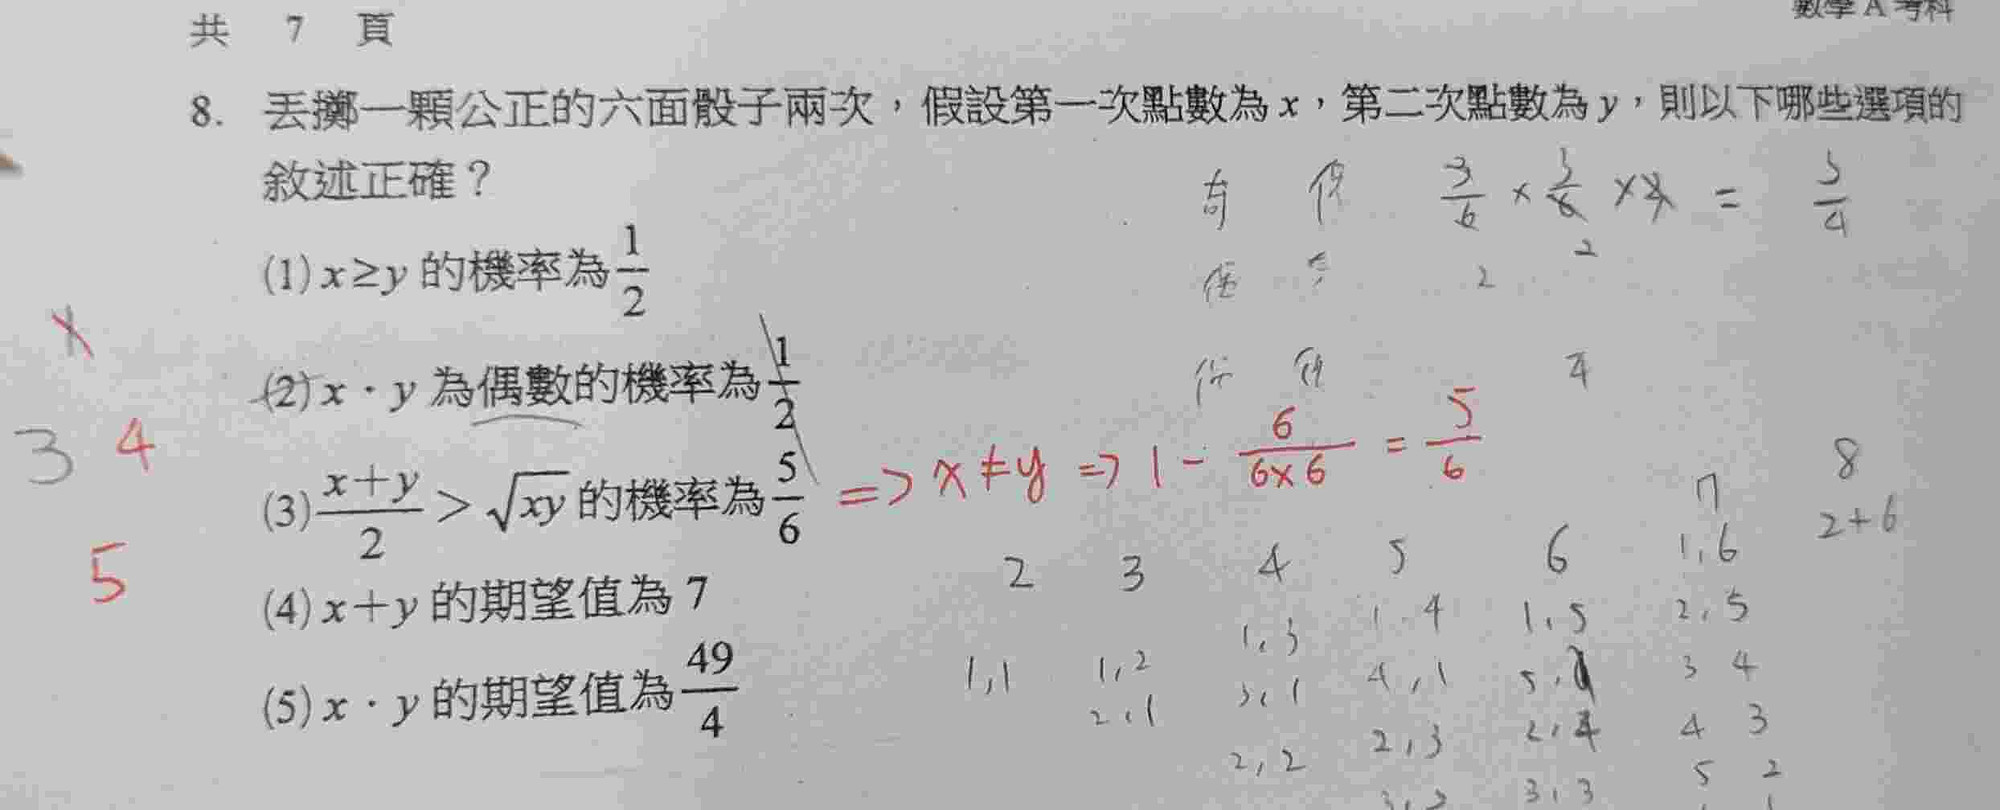 共 7 頁
數學 A 考科
8. 丟擲一顆公正的六面骰子兩次，假設第一次點數為 x，第二次點數為 y，則以下哪些選項的
敘述正確？
奇 偶 3/6 × 3/6 × = 3/4
2 2
(1) x≥y 的機率為 1/2
(2) x．y 為偶數的機率為 1/2
4
3 4
(3) (x+y)/2 > √xy 的機率為 5/6 => x ≠ y => 1 - 6/(6×6) = 5/6
5
(4) x+y 的期望值為 7
(5) x．y 的期望值為 49/4
2 3 4 5 6 7 8
1,6 2+6
1,3 1.4 1,5 2,5
1,1 1,2 3,1 4,1 3 4
2,1 2,2 2,3 2,4 4 3
3,3 5 2